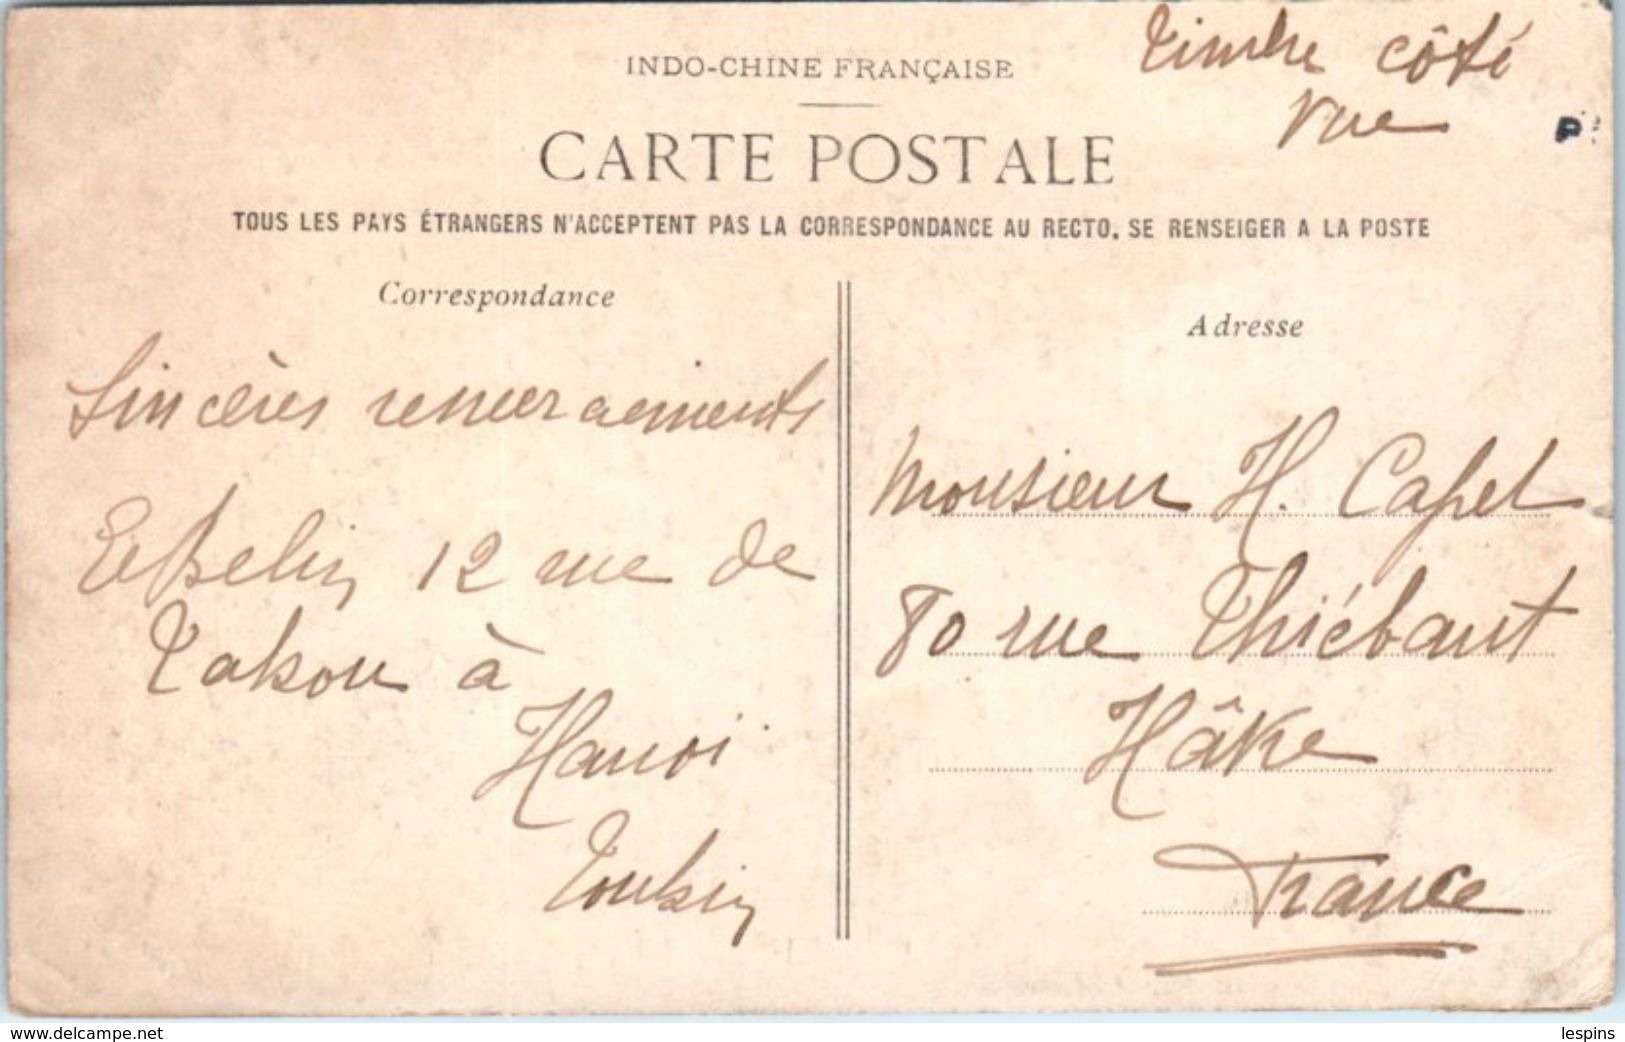 INDO-CHINE FRANÇAISE
Timbre côté
vue
P
CARTE POSTALE
TOUS LES PAYS ÉTRANGERS N'ACCEPTENT PAS LA CORRESPONDANCE AU RECTO. SE RENSEIGER A LA POSTE
Correspondance
Sincères remerciements
12 rue de
Takou à
Hanoi
Tonkin
Adresse
Monsieur H. Capel
80 rue Thiébaut
Hâke
France
www.delcampe.net
lespins